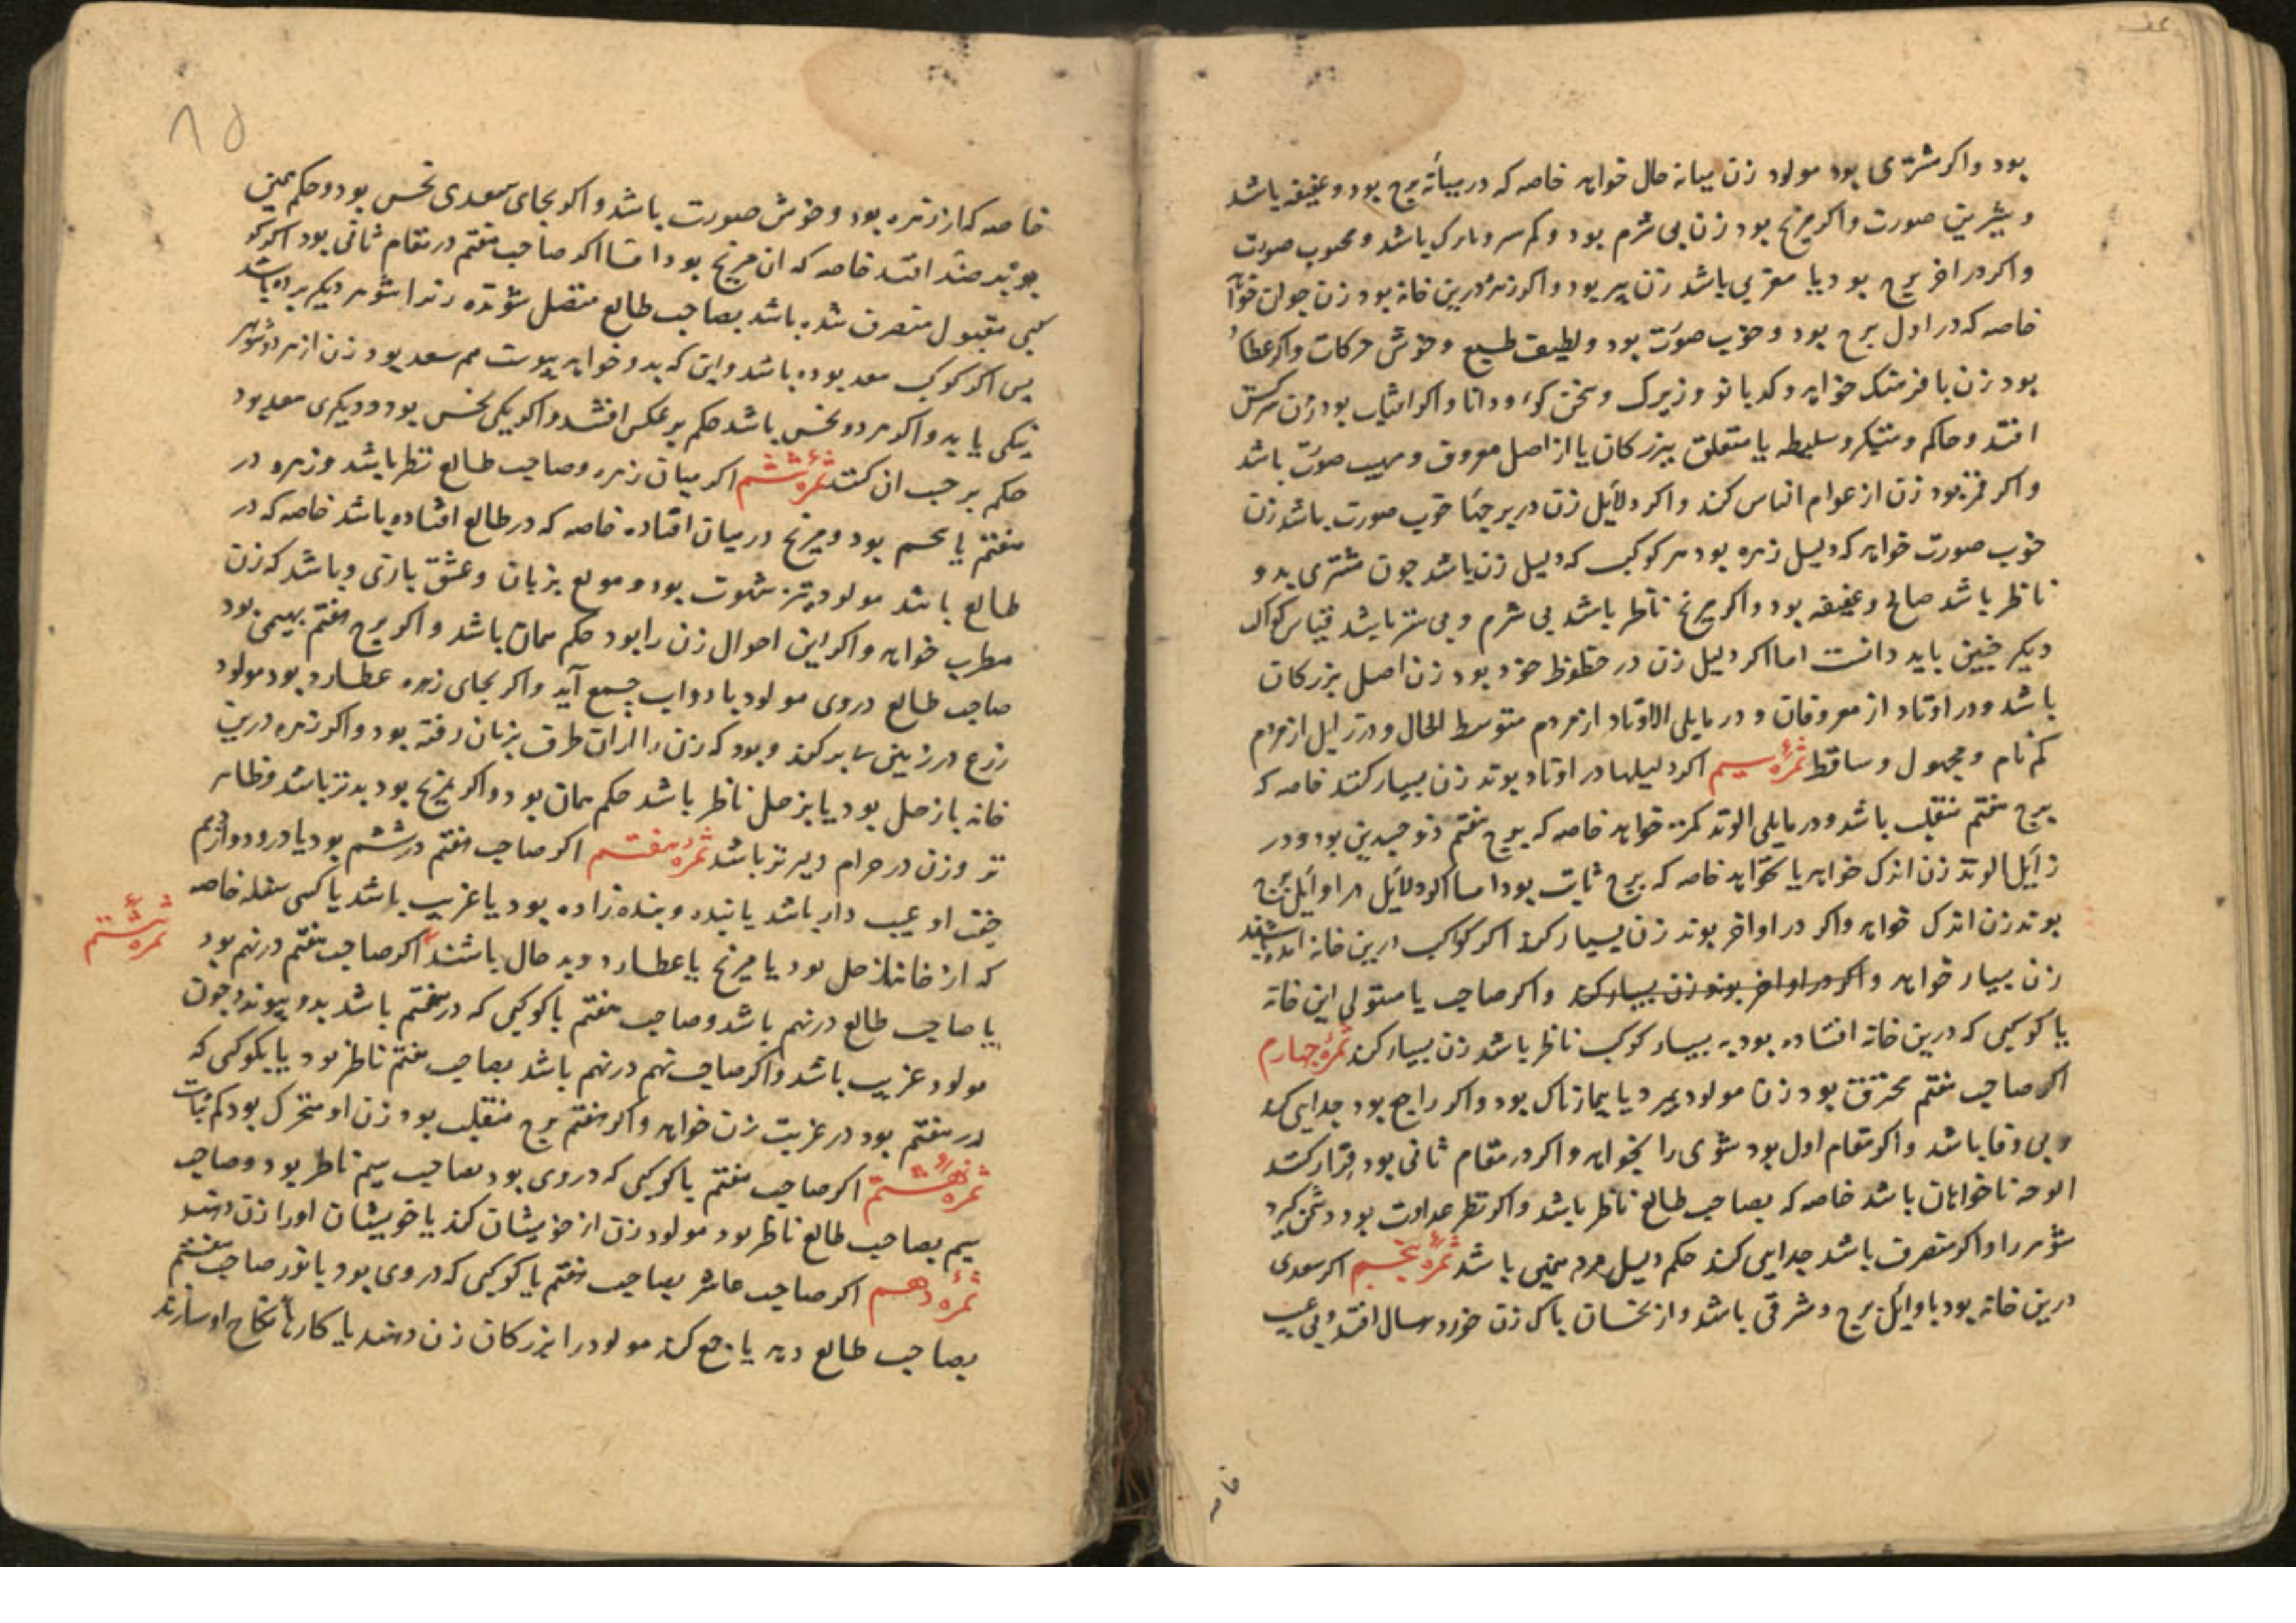 بود واکر مشتری بود مولود زن میانه حال خواهد خاصه که در میانه برج بود و عفیفه باشد
و شیرین صورت واکر مریخ بود زن بی شرم بود و کم سر و باشد و محبوب صورت
واکر در اخر برج بود یا مغربی باشد زن پیر بود واکر زهره درین خانه بود زن جوان خواهد
خاصه که در اول برج بود و خوب صورت بود و لطیف طبع و خوش حرکات واکر عطارد
بود زن با فرهنک خواهد و کدبانو و زیرک و سخن کوی و دانا واکر افتاب بود زن سرکش
افتد و حاکم و متکبر و سلیطه یا متعلق ببزرکان یا از اصل معروف و مهیب صورت باشد
واکر قمر بود زن از عوام الناس کند واکر دلایل زن در برجهاء خوب صورت باشد زن
خوب صورت خواهد که دلیل زهره بود هر کوکب که دلیل زن باشد جون مشتری بدو
ناظر باشد صالح و عفیفه بود واکر مریخ ناظر باشد بی شرم و بی ستر باشد قیاس کواکب
دیکر جنین باید دانست اما اکر دلیل زن در حظوظ خود بود زن اصل بزرکان
باشد و در اوتاد از معروفان و در مایلی الاوتاد از مردم متوسط الحال و در زایل از مردم
کم نام و مجهول و ساقط ثمرهٔ سیم اکر دلیلها در اوتاد بوند زن بسیار کند خاصه که
برج هفتم منقلب باشد و در مایلی الوتد کمتر خواهد خاصه که برج هفتم ذو جسدین بود و در
زایل الوتد زن اندک خواهد یا نخواهد خاصه که برج ثابت بود اما اکر دلایل در اوایل برج
بوند زن اندک خواهد واکر در اواخر بوند زن بسیار کند اکر کواکب درین خانه
زن بسیار خواهد واکر در اواخر بوند زن بسیار کند واکر صاحب یا مستولی این خانه
یا کوکبی که درین خانه افتاده بود به بسیار کوکب ناظر باشد زن بسیار کند ثمرهٔ جهارم
اکر صاحب هفتم محترق بود زن مولود بمیرد یا بیمارناک بود واکر راجع بود جدایی کند
و بی وفا باشد واکر مقام اول بود شوی را نخواهد واکر در مقام ثانی بود قرار کند
الوحه ناخواهان باشد خاصه که بصاحب طالع ناظر باشد واکر نظر عداوت بود دشمن کیرد
شوهر را واکر منصرف باشد جدایی کند حکم دلیل مرد همین باشد ثمرهٔ پنجم اکر سعدی
درین خانه بود باوایل برج و مشرقی باشد و از نحسان پاک زن خورد سال افتد و بی عیب
خاصه
۸۵
خاصه که از زهره بود و خوش صورت باشد واکر بجای سعدی نحس بود و حکم همین
بود بر ضد افتد خاصه که ان مریخ بود امّا اکر صاحب هفتم در مقام ثانی بود اکر کو
کبی مقبول منصرف شده باشد بصاحب طالع متصل شونده زن را شوهر دیکر بوده باشد
پس اکر کوکب سعد بوده باشد واین که بدو خواهد پیوست هم سعد بود زن از هر دو شوهر
نیکی یابد واکر هر دو نحس باشد حکم برعکس افتد واکر یکی نحس بود و دیکری سعد بود
حکم بر حسب ان کنند ثمرهٔ ششم اکر میان زهره و صاحب طالع نظر باشد و زهره در
هفتم یا نهم بود و مریخ در میان افتاده خاصه که در طالع افتاده باشد خاصه که در
طالع باشد مولود تیز شهوت بود و مولع بزنان و عشق بازی و باشد که زن
مطرب خواهد واکر این احوال زن را بود حکم همان باشد واکر برج هفتم بهیمی بود
صاحب طالع در وی مولود با دواب جمع آید واکر بجای زهره عطارد بود مولود
زرع در زمینی کند و بود که زن را طرف بزنان رفته بود واکر زهره درین
خانه با زحل بود یا بزحل ناظر باشد حکم همان بود واکر مریخ بود بدتر باشد و ظاهر
تر و زن در حرام دلیرتر باشد ثمرهٔ هفتم اکر صاحب هفتم در ششم بود یا در دوازدهم
جفت او عیب دار باشد یا بنده و بنده زاده بود یا غریب باشد یا کسی سفله خاصه
که از خانهاء زحل بود یا مریخ یا عطارد و بد حال باشند اکر صاحب هفتم در نهم بود
ثمرهٔ هشتم
یا صاحب طالع در نهم باشد و صاحب هفتم یا کوکبی که در هفتم باشد بدو پیوندد جون
مولود غریب باشد واکر صاحب نهم در نهم باشد بصاحب هفتم ناظر بود یا بکوکبی که
در هفتم بود در غربت زن خواهد واکر هفتم برج منقلب بود زن او متحرک بود کم ثبات
ثمرهٔ نهم اکر صاحب هفتم یا کوکبی که در وی بود بصاحب سیم ناظر بود و صاحب
سیم بصاحب طالع ناظر بود مولود زن از خویشان کند یا خویشان او را زن دهند
ثمرهٔ دهم اکر صاحب عاشر بصاحب هفتم یا کوکبی که در وی بود یا نور صاحب هفتم
بصاحب طالع دهد یا جمع کند مولود را بزرکان زن دهند یا کارهاء نکاح او سازند